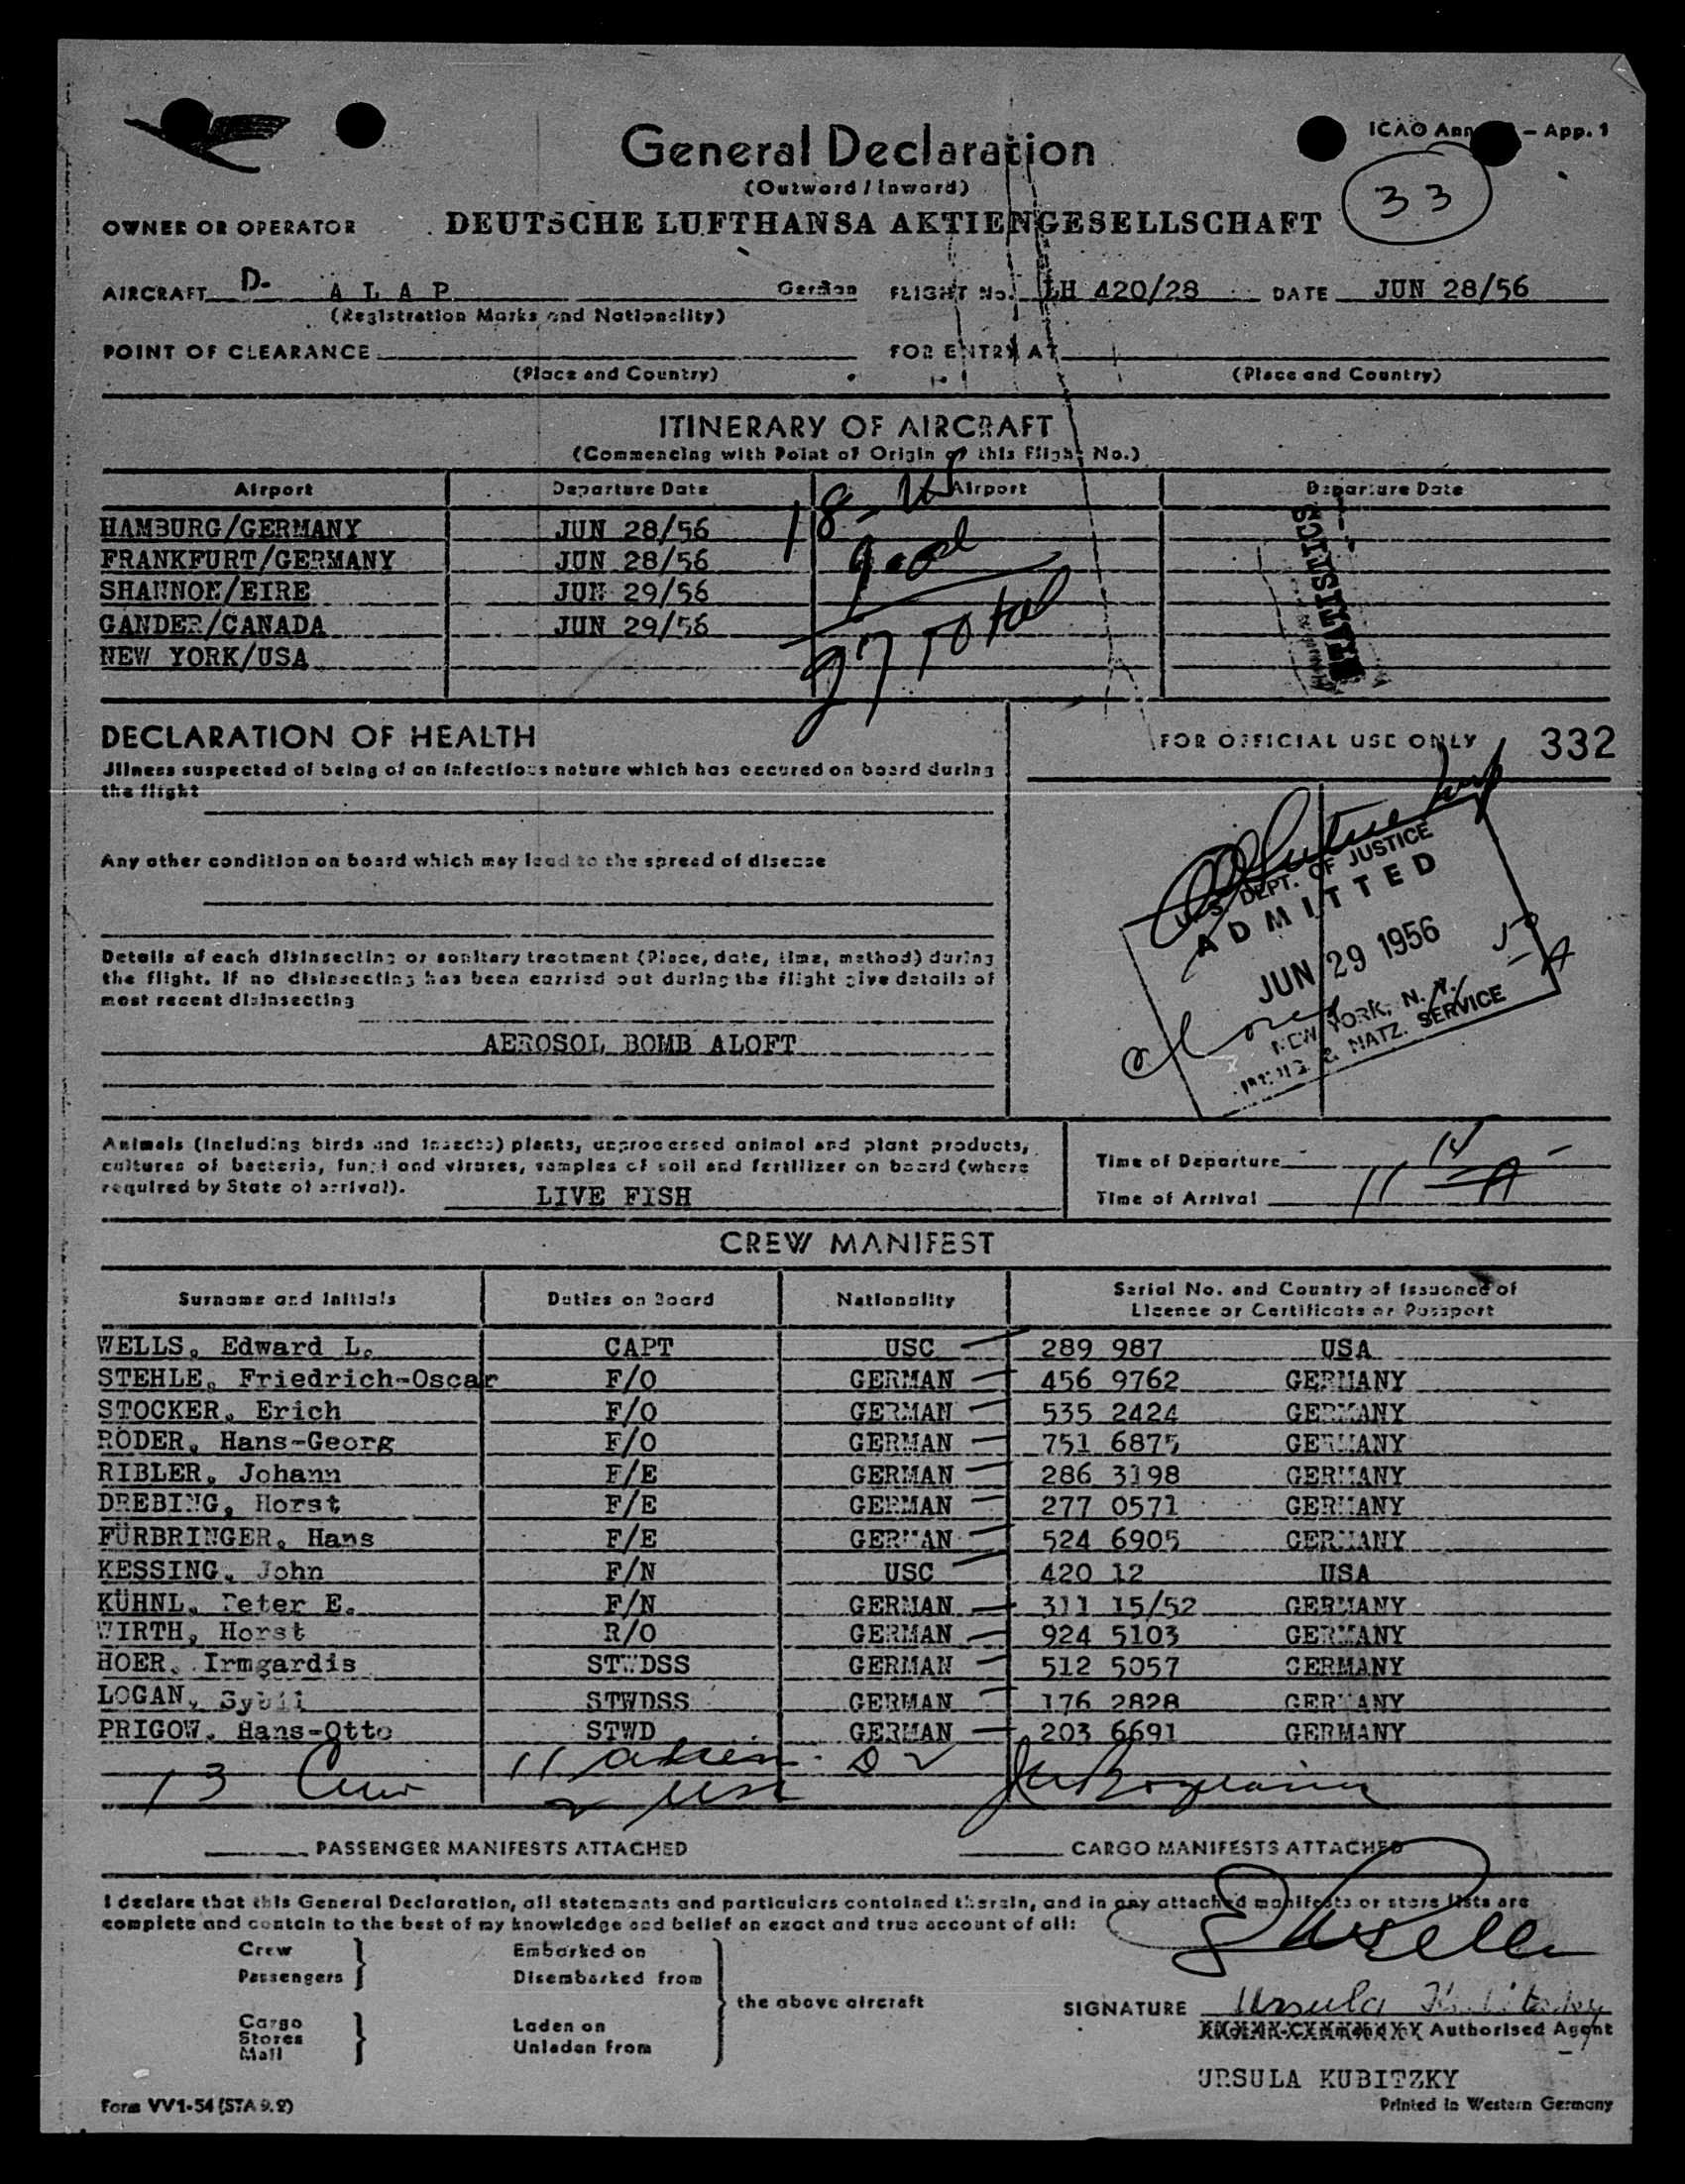 General Declaration
ICAO Ann – App. 1
(Outward / Inward)
33
OWNER OR OPERATOR DEUTSCHE LUFTHANSA AKTIENGESELLSCHAFT
AIRCRAFT D- A L A P German FLIGHT No. LH 420/28 DATE JUN 28/56
(Registration Marks and Nationality)
POINT OF CLEARANCE FOR ENTRY AT
(Place and Country) (Place and Country)
ITINERARY OF AIRCRAFT
(Commencing with Point of Origin of this Flight No.)
Airport Departure Date Airport Departure Date
HAMBURG/GERMANY JUN 28/56
FRANKFURT/GERMANY JUN 28/56
SHANNON/EIRE JUN 29/56
GANDER/CANADA JUN 29/56
NEW YORK/USA
27 Total
STATISTICS
DECLARATION OF HEALTH
FOR OFFICIAL USE ONLY 332
Jllness suspected of being of an infectious nature which has occured on board during
the flight
Any other condition on board which may lead to the spread of disease
Details of each disinsecting or sanitary treatment (Place, date, time, method) during
the flight. If no disinsecting has been carried out during the flight give details of
most recent disinsecting
AEROSOL BOMB ALOFT
U. S. DEPT. OF JUSTICE
ADMITTED
JUN 29 1956
NEW YORK, N. Y.
IMMIG. & NATZ. SERVICE
Animals (including birds and insects) plants, unprocessed animal and plant products,
cultures of bacteria, fungi and viruses, samples of soil and fertilizer on board (where
required by State of arrival).
LIVE FISH
Time of Departure
Time of Arrival
CREW MANIFEST
Surname and Initials Duties on Board Nationality Serial No. and Country of Issuance of
Licence or Certificate or Passport
WELLS, Edward L. CAPT USC 289 987 USA
STEHLE, Friedrich-Oscar F/O GERMAN 456 9762 GERMANY
STOCKER, Erich F/O GERMAN 535 2424 GERMANY
RÖDER, Hans-Georg F/O GERMAN 751 6875 GERMANY
RIBLER, Johann F/E GERMAN 286 3198 GERMANY
DREBING, Horst F/E GERMAN 277 0571 GERMANY
FÜRBRINGER, Hans F/E GERMAN 524 6905 GERMANY
KESSING, John F/N USC 420 12 USA
KÜHNL, Peter E. F/N GERMAN 311 15/52 GERMANY
WIRTH, Horst R/O GERMAN 924 5103 GERMANY
HOER, Irmgardis STWDSS GERMAN 512 5057 GERMANY
LOGAN, Sybil STWDSS GERMAN 176 2828 GERMANY
PRIGOW, Hans-Otto STWD GERMAN 203 6691 GERMANY
13 Crew 11 alien
2 USC
PASSENGER MANIFESTS ATTACHED CARGO MANIFESTS ATTACHED
I declare that this General Declaration, all statements and particulars contained therein, and in any attached manifests or store lists are
complete and contain to the best of my knowledge and belief an exact and true account of all:
Crew Embarked on
Passengers Disembarked from
the above aircraft
Cargo Laden on
Stores
Mail Unladen from
SIGNATURE Ursula Kubitzky
Authorised Agent
URSULA KUBITZKY
Form VV1-54 (STA 9.2)
Printed in Western Germany